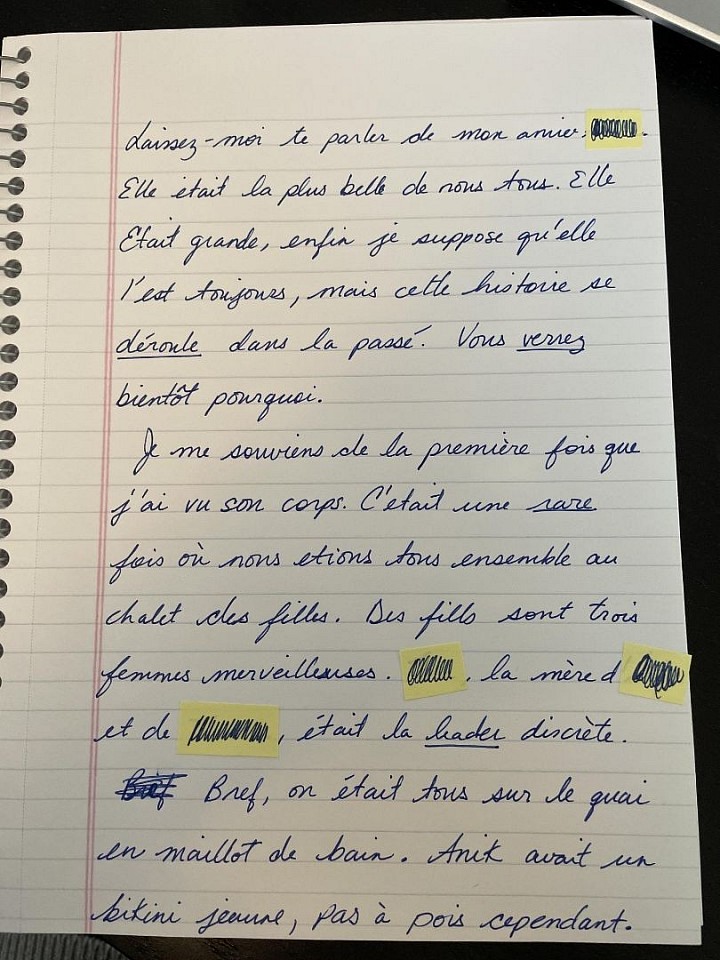 Laissez-moi te parler de mon amie.
Elle était la plus belle de nous tous. Elle
Était grande, enfin je suppose qu'elle
l'est toujours, mais cette histoire se
déroule dans la passé. Vous verrez
bientôt pourquoi.
Je me souviens de la première fois que
j'ai vu son corps. C'était une rare
fois où nous etions tous ensemble au
chalet des filles. Des filles sont trois
femmes merveilleuses. , la mère d
et de , était la leader discrète.
Bref, on était tous sur le quai
en maillot de bain. Anik avait un
bikini jeaune, pas à pois cependant.